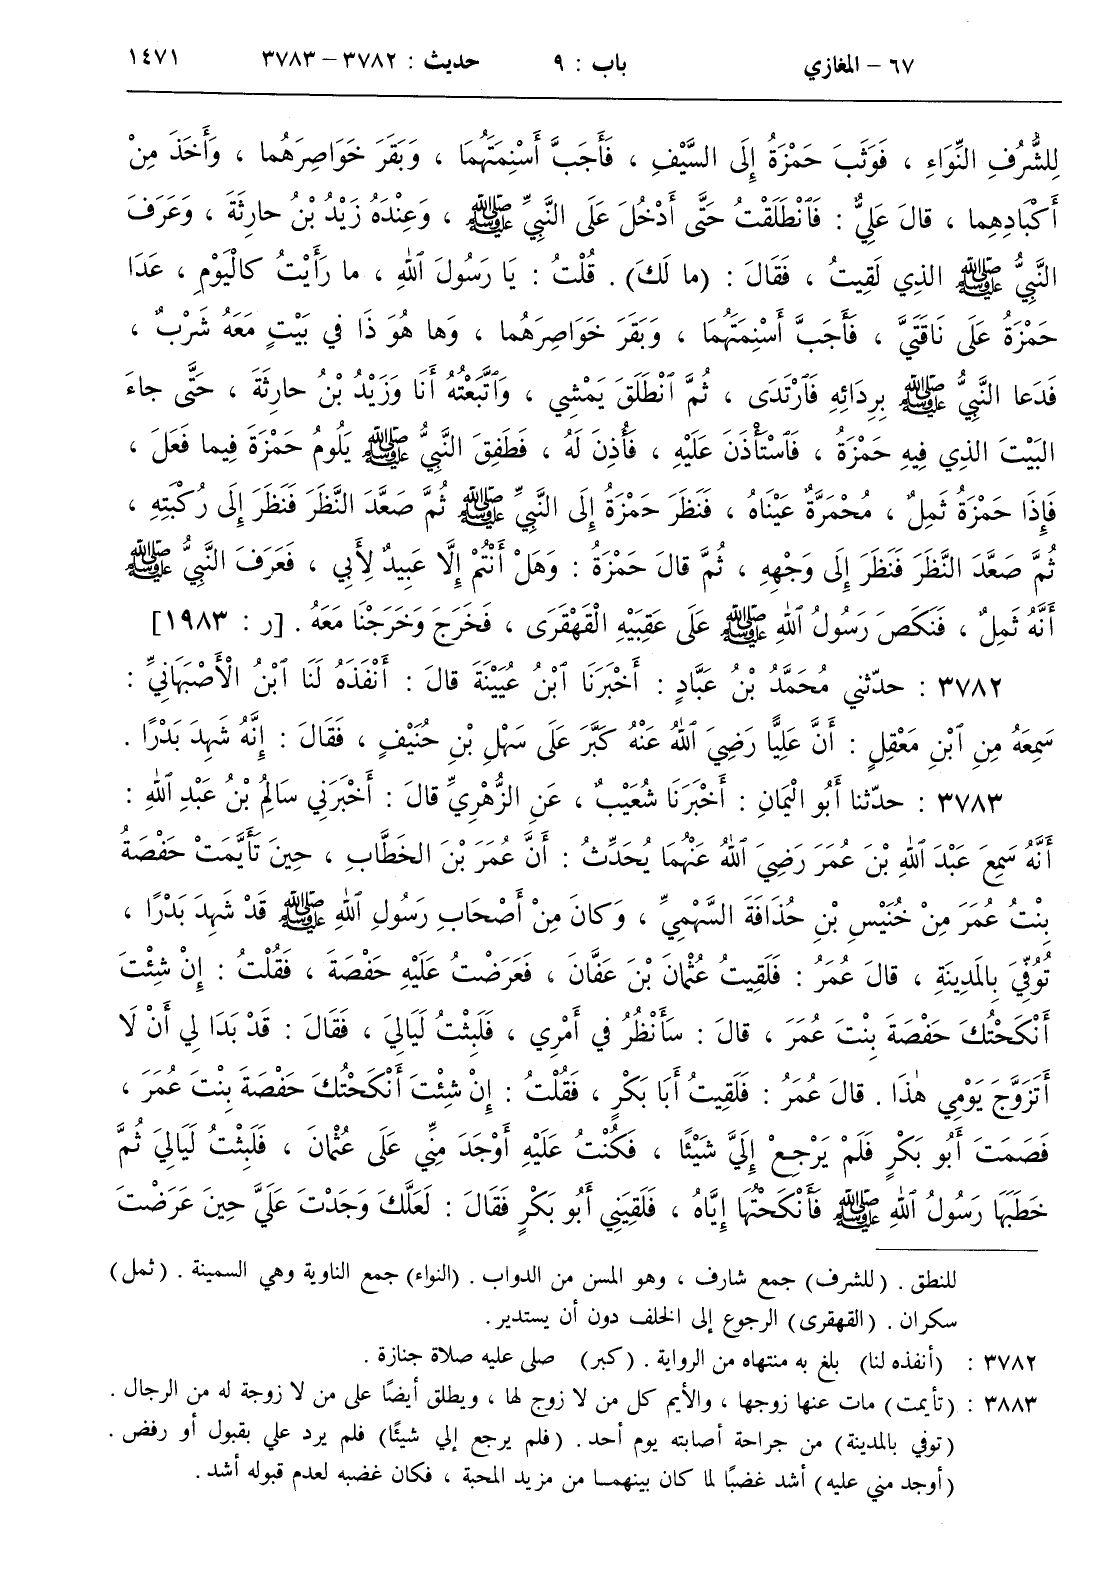 ٦٧ – المغازي باب : ٩ حديث : ٣٧٨٢ – ٣٧٨٣ ١٤٧١
لِلشُّرُفِ النِّوَاءِ ، فَوَثَبَ حَمْزَةُ إِلَى السَّيْفِ ، فَأَجَبَّ أَسْنِمَتَهُمَا ، وَبَقَرَ خَوَاصِرَهُما ، وَأَخَذَ مِنْ
أَكْبَادِهِما ، قالَ عَلِيٌّ : فَٱنْطَلَقْتُ حَتَّى أَدْخُلَ عَلَى النَّبِيِّ ﷺ ، وَعِنْدَهُ زَيْدُ بْنُ حارِثَةَ ، وَعَرَفَ
النَّبِيُّ ﷺ الذِي لَقِيتُ ، فَقَالَ : (ما لَكَ) . قُلْتُ : يَا رَسُولَ ٱللهِ ، ما رَأَيْتُ كالْيَوْمِ ، عَدَا
حَمْزَةُ عَلَى نَاقَتَيَّ ، فَأَجَبَّ أَسْنِمَتَهُمَا ، وَبَقَرَ خَوَاصِرَهُما ، وَها هُوَ ذَا في بَيْتٍ مَعَهُ شَرْبٌ ،
فَدَعا النَّبِيُّ ﷺ بِرِدَائِهِ فَٱرْتَدَى ، ثُمَّ ٱنْطَلَقَ يَمْشِي ، وَٱتَّبَعْتُهُ أَنَا وَزَيْدُ بْنُ حارِثَةَ ، حَتَّى جاءَ
البَيْتَ الذِي فِيهِ حَمْزَةُ ، فَٱسْتَأْذَنَ عَلَيْهِ ، فَأُذِنَ لَهُ ، فَطَفِقَ النَّبِيُّ ﷺ يَلُومُ حَمْزَةَ فِيما فَعَلَ ،
فَإِذَا حَمْزَةُ ثَمِلٌ ، مُحْمَرَّةٌ عَيْنَاهُ ، فَنَظَرَ حَمْزَةُ إِلَى النَّبِيِّ ﷺ ثُمَّ صَعَّدَ النَّظَرَ فَنَظَرَ إِلَى رُكْبَتِهِ ،
ثُمَّ صَعَّدَ النَّظَرَ فَنَظَرَ إِلَى وَجْهِهِ ، ثُمَّ قالَ حَمْزَةُ : وَهَلْ أَنْتُمْ إِلَّا عَبِيدٌ لِأَبِي ، فَعَرَفَ النَّبِيُّ ﷺ
أَنَّهُ ثَمِلٌ ، فَنَكَصَ رَسُولُ ٱللهِ ﷺ عَلَى عَقِبَيْهِ الْقَهْقَرَى ، فَخَرَجَ وَخَرَجْنَا مَعَهُ . [ر : ١٩٨٣]
٣٧٨٢ : حدّثني مُحَمَّدُ بْنُ عَبَّادٍ : أَخْبَرَنَا ٱبْنُ عُيَيْنَةَ قالَ : أَنْفَذَهُ لَنَا ٱبْنُ الْأَصْبَهَانِيِّ :
سَمِعَهُ مِنِ ٱبْنِ مَعْقِلٍ : أَنَّ عَلِيًّا رَضِيَ ٱللهُ عَنْهُ كَبَّرَ عَلَى سَهْلِ بْنِ حُنَيْفٍ ، فَقَالَ : إِنَّهُ شَهِدَ بَدْرًا .
٣٧٨٣ : حدّثنا أَبُو الْيَمَانِ : أَخْبَرَنَا شُعَيْبٌ ، عَنِ الزُّهْرِيِّ قالَ : أَخْبَرَنِي سَالِمُ بْنُ عَبْدِ ٱللهِ :
أَنَّهُ سَمِعَ عَبْدَ ٱللهِ بْنَ عُمَرَ رَضِيَ ٱللهُ عَنْهُما يُحَدِّثُ : أَنَّ عُمَرَ بْنَ الخَطَّابِ ، حِينَ تَأَيَّمَتْ حَفْصَةُ
بِنْتُ عُمَرَ مِنْ خُنَيْسِ بْنِ حُذَافَةَ السَّهْمِيِّ ، وَكانَ مِنْ أَصْحَابِ رَسُولِ ٱللهِ ﷺ قَدْ شَهِدَ بَدْرًا ،
تُوُفِّيَ بِالمَدِينَةِ ، قالَ عُمَرُ : فَلَقِيتُ عُثْمَانَ بْنَ عَفَّانَ ، فَعَرَضْتُ عَلَيْهِ حَفْصَةَ ، فَقُلْتُ : إِنْ شِئْتَ
أَنْكَحْتُكَ حَفْصَةَ بِنْتَ عُمَرَ ، قالَ : سَأَنْظُرُ في أَمْرِي ، فَلَبِثْتُ لَيَالِيَ ، فَقَالَ : قَدْ بَدَا لِي أَنْ لَا
أَتَزَوَّجَ يَوْمِي هٰذَا . قالَ عُمَرُ : فَلَقِيتُ أَبَا بَكْرٍ ، فَقُلْتُ : إِنْ شِئْتَ أَنْكَحْتُكَ حَفْصَةَ بِنْتَ عُمَرَ ،
فَصَمَتَ أَبُو بَكْرٍ فَلَمْ يَرْجِعْ إِلَيَّ شَيْئًا ، فَكُنْتُ عَلَيْهِ أَوْجَدَ مِنِّي عَلَى عُثْمَانَ ، فَلَبِثْتُ لَيَالِيَ ثُمَّ
خَطَبَهَا رَسُولُ ٱللهِ ﷺ فَأَنْكَحْتُهَا إِيَّاهُ ، فَلَقِيَنِي أَبُو بَكْرٍ فَقَالَ : لَعَلَّكَ وَجَدْتَ عَلَيَّ حِينَ عَرَضْتَ
للنطق . (للشرف) جمع شارف ، وهو المسن من الدواب . (النواء) جمع الناوية وهي السمينة . (ثمل)
سكران . (القهقرى) الرجوع إلى الخلف دون أن يستدير .
٣٧٨٢ : (أنفذه لنا) بلغ به منتهاه من الرواية . (كبر) صلى عليه صلاة جنازة .
٣٨٨٣ : (تأيمت) مات عنها زوجها ، والأيم كل من لا زوج لها ، ويطلق أيضًا على من لا زوجة له من الرجال .
(توفي بالمدينة) من جراحة أصابته يوم أحد . (فلم يرجع إلي شيئًا) فلم يرد علي بقبول أو رفض .
(أوجد مني عليه) أشد غضبًا لما كان بينهما من مزيد المحبة ، فكان غضبه لعدم قبوله أشد .